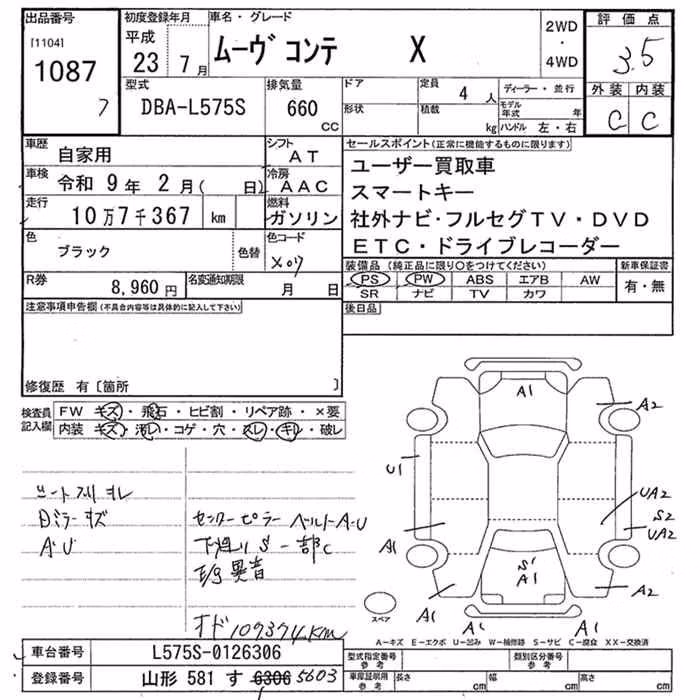 出品番号 初度登録年月 車名・グレード 2WD・4WD 評価点
[1104] 1087 7 平成 23 7月 ムーヴ コンテ X 3.5
型式 排気量 ドア 定員 4人 ディーラー・並行 外装 内装
DBA-L575S 660 CC 形状 積載 kg モデル年式 年 C C
ハンドル 左・右
車歴 自家用 シフト AT セールスポイント(正常に機能するものに限ります)
車検 令和 9年 2月( 日) 冷房 AAC ユーザー買取車
スマートキー
走行 10万7千367 km 燃料 ガソリン 社外ナビ・フルセグTV・DVD
色 ブラック 色替 色コード X07 ETC・ドライブレコーダー
R券 8,960円 名変通知期限 月 日 装備品(純正品に限り○をつけてください) 新車保証書
PS PW ABS エアB AW 有・無
SR ナビ TV カワ
注意事項申告欄(不具合内容等は具体的に記入して下さい) 後日品
修復歴 有〔箇所 〕
検査員記入欄 FW キズ・飛石・ヒビ割・リペア跡・×要
内装 キズ・汚レ・コゲ・穴・スレ・キレ・破レ
A1 A2
U1
シートスリキレ UA2
Dミラーキズ センターピラー ベルトA・U S2
A・U 下廻りS一部C A1 UA2
E/g異音 S1
A1
A1 A2
スペア
オド109374km A1 A1
A-キズ E-エクボ U-凹み W-補修跡 S-サビ C-腐食 XX-交換済
車台番号 L575S-0126306 型式指定番号 参考 類別区分番号 参考
登録番号 山形 581 す 6306 5603 車庫証明用 参考 長さ cm 幅 cm 高さ cm